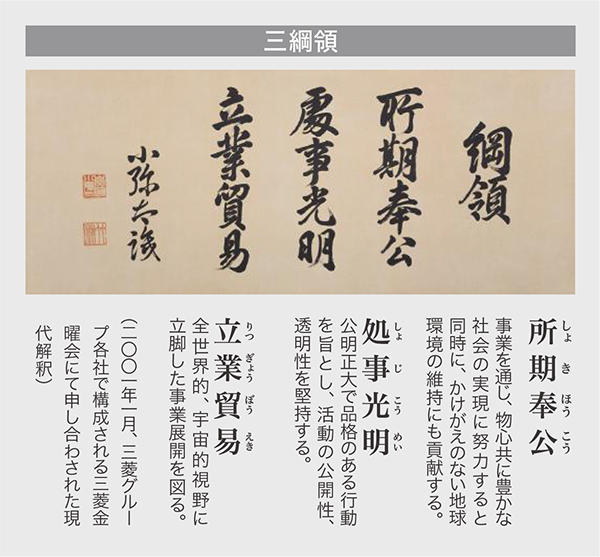 三綱領
綱領
所期奉公
處事光明
立業貿易
小弥太識
所期奉公
しょきほうこう
事業を通じ、物心共に豊かな
社会の実現に努力すると
同時に、かけがえのない地球
環境の維持にも貢献する。
処事光明
しょじこうめい
公明正大で品格のある行動
を旨とし、活動の公開性、
透明性を堅持する。
立業貿易
りつぎょうぼうえき
全世界的、宇宙的視野に
立脚した事業展開を図る。
（二〇〇一年一月、三菱グルー
プ各社で構成される三菱金
曜会にて申し合わされた現
代解釈）